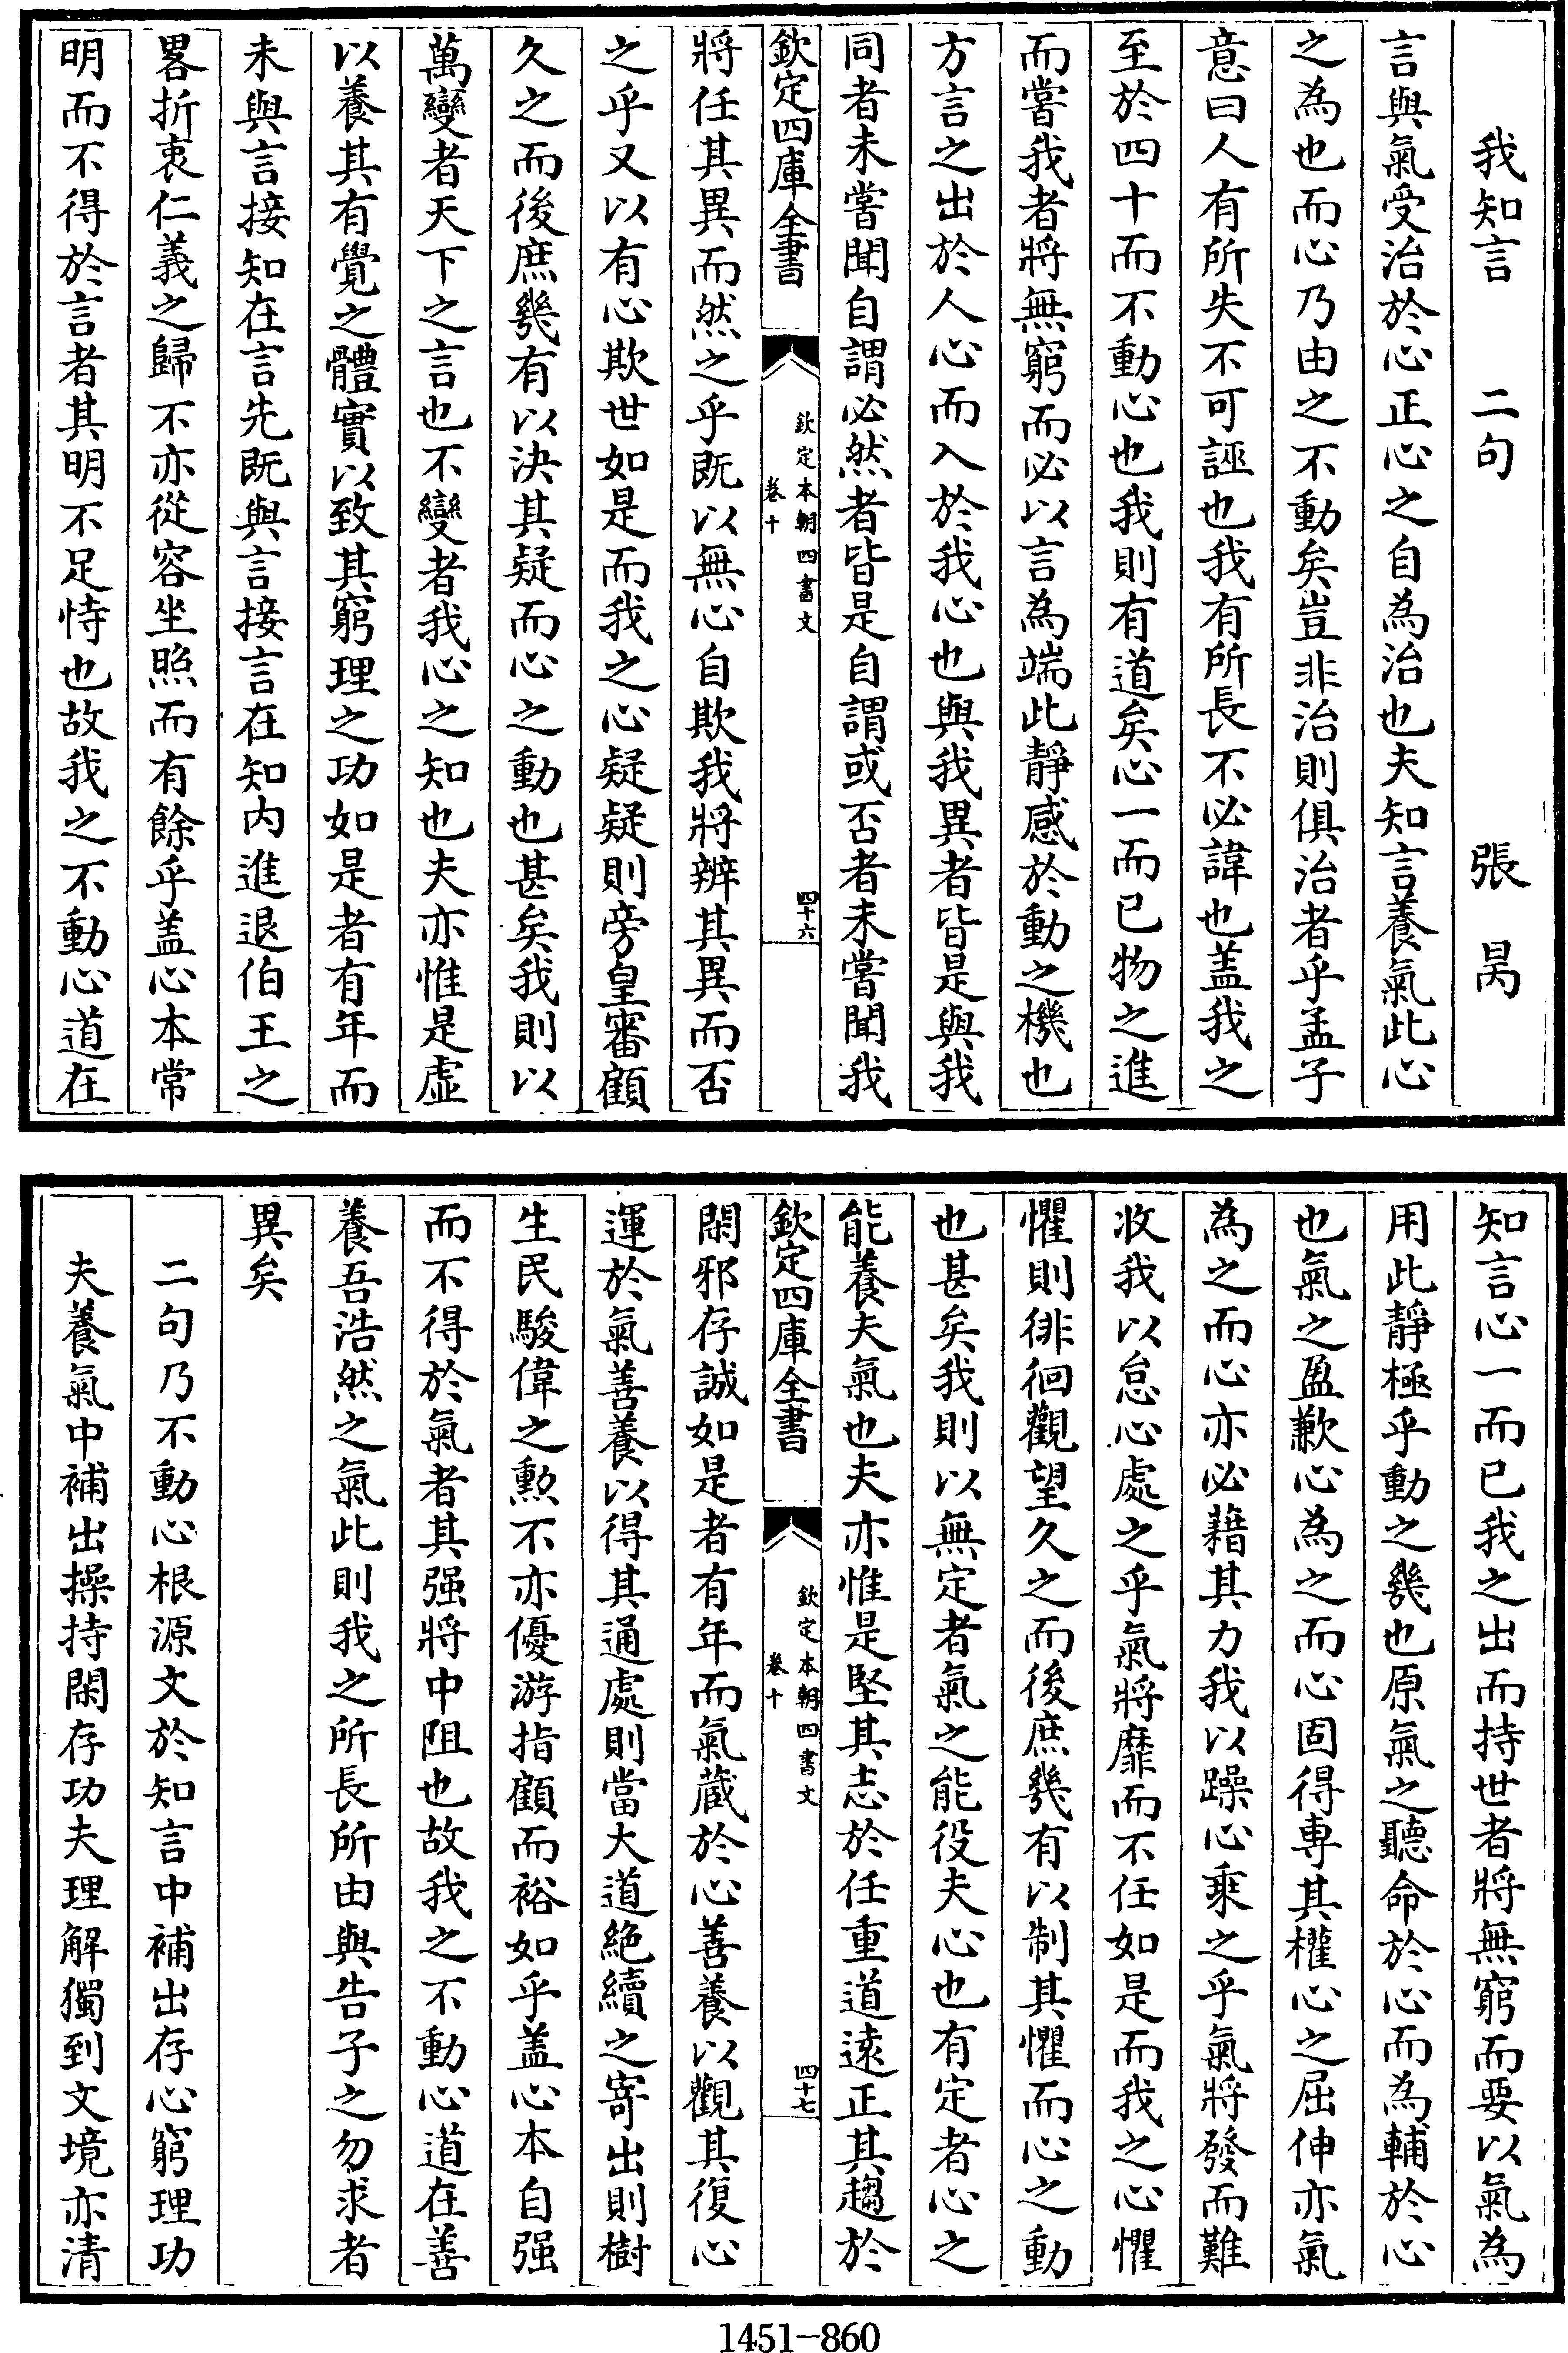 我知言　二句　張昺
言與氣受治於心正心之自為治也夫知言養氣此心
之為也而心乃由之不動矣豈非治則俱治者乎孟子
意曰人有所失不可誣也我有所長不必諱也盖我之
至於四十而不動心也我則有道矣心一而已物之進
而嘗我者將無窮而必以言為端此靜感於動之機也
方言之出於人心而入於我心也與我異者皆是與我
同者未嘗聞自謂必然者皆是自謂或否者未嘗聞我
欽定四庫全書
欽定本朝四書文
卷十
四十六
將任其異而然之乎既以無心自欺我將辨其異而否
之乎又以有心欺世如是而我之心疑疑則旁皇審顧
久之而後庶幾有以決其疑而心之動也甚矣我則以
萬變者天下之言也不變者我心之知也夫亦惟是虛
以養其有覺之體實以致其窮理之功如是者有年而
未與言接知在言先既與言接言在知内進退伯王之
畧折衷仁義之歸不亦從容坐照而有餘乎盖心本常
明而不得於言者其明不足恃也故我之不動心道在
知言心一而已我之出而持世者將無窮而要以氣為
用此靜極乎動之幾也原氣之聽命於心而為輔於心
也氣之盈歉心為之而心固得専其權心之屈伸亦氣
為之而心亦必藉其力我以躁心乘之乎氣將發而難
收我以怠心處之乎氣將靡而不任如是而我之心懼
懼則徘徊觀望久之而後庶幾有以制其懼而心之動
也甚矣我則以無定者氣之能役夫心也有定者心之
能養夫氣也夫亦惟是堅其志於任重道遠正其趨於
欽定四庫全書
欽定本朝四書文
卷十
四十七
閑邪存誠如是者有年而氣蔵於心善養以觀其復心
運於氣善養以得其通處則當大道絶續之寄出則樹
生民駿偉之勲不亦優游指顧而裕如乎盖心本自强
而不得於氣者其强將中阻也故我之不動心道在善
養吾浩然之氣此則我之所長所由與告子之勿求者
異矣
二句乃不動心根源文於知言中補出存心窮理功
夫養氣中補出操持閑存功夫理解獨到文境亦清
1451-860